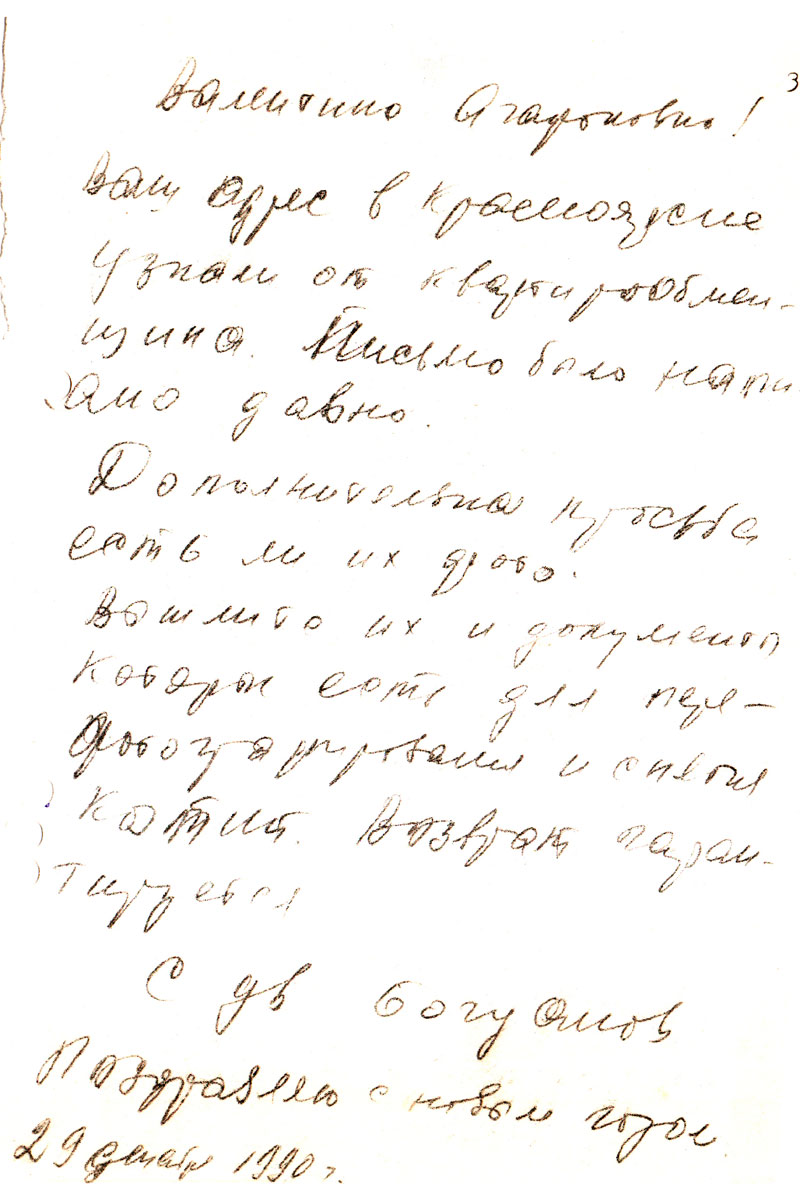 3
Валентина Агафоновна!
Ваш адрес в Красноярске
узнали от квартирообмен-
щика. Письмо было напи
сано давно.
Дополнительная просьба
есть ли их фото.
Вышлите их и документы
которы есть для пере-
фотографирования и снятия
копий. Возврат гаран-
тируется
С ув
Поздравляю с новым годом
29 декабря 1990 г.